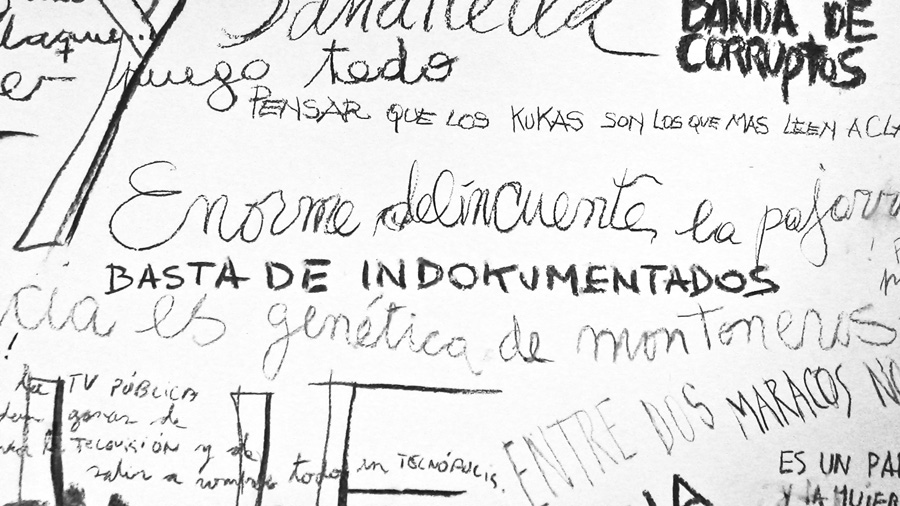 BANDA DE
CORRUPTOS
juego todo
PENSAR QUE LOS KUKAS SON LOS QUE MAS LEEN A CLA
Enorme delincuente, la pajarr
BASTA DE INDOKUMENTADOS
cia es genética de montoneros
!
la TV PÚBLICA
ganas de
la TELEVISIÓN y de
salir a romper todo en TECNÓPOLIS.
ENTRE DOS MARACOS NO
ES UN PA
Y LA MUJER